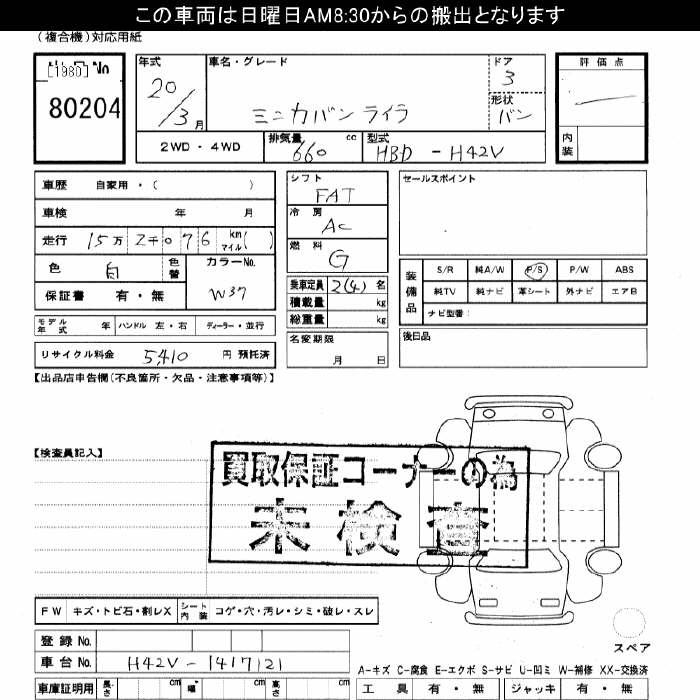 この車両は日曜日AM8:30からの搬出となります
(複合機)対応用紙
[1980] No
80204
年式
20/3月
車名・グレード
ミニカバン ライラ
ドア
3
形状
バン
評価点
内装
2WD・4WD
排気量 660 cc
型式 HBD - H42V
車歴 自家用・( )
車検 年 月
走行 15万2千076 km マイル( )
色 白 色替
カラーNo.
W37
保証書 有・無
モデル年式 年 ハンドル 左・右 ディーラー・並行
リサイクル料金 5,410 円 預託済
シフト
FAT
冷房
AC
燃料
G
乗車定員 2(4) 名
積載量 kg
総重量 kg
名変期限
月 日
セールスポイント
装備品
S/R 純A/W P/S P/W ABS
純TV 純ナビ 革シート 外ナビ エアB
ナビ型番:
後日品
【出品店申告欄(不良箇所・欠品・注意事項等)】
【検査員記入】
買取保証コーナーの為
未検査
FW キズ・トビ石・割レX シート内装 コゲ・穴・汚レ・シミ・破レ・スレ
登録No.
車台No. H42V-1417121
車庫証明用 長さ cm 幅 cm 高さ cm
スペア
A-キズ C-腐食 E-エクボ S-サビ U-凹ミ W-補修 XX-交換済
工具 有・無 ジャッキ 有・無